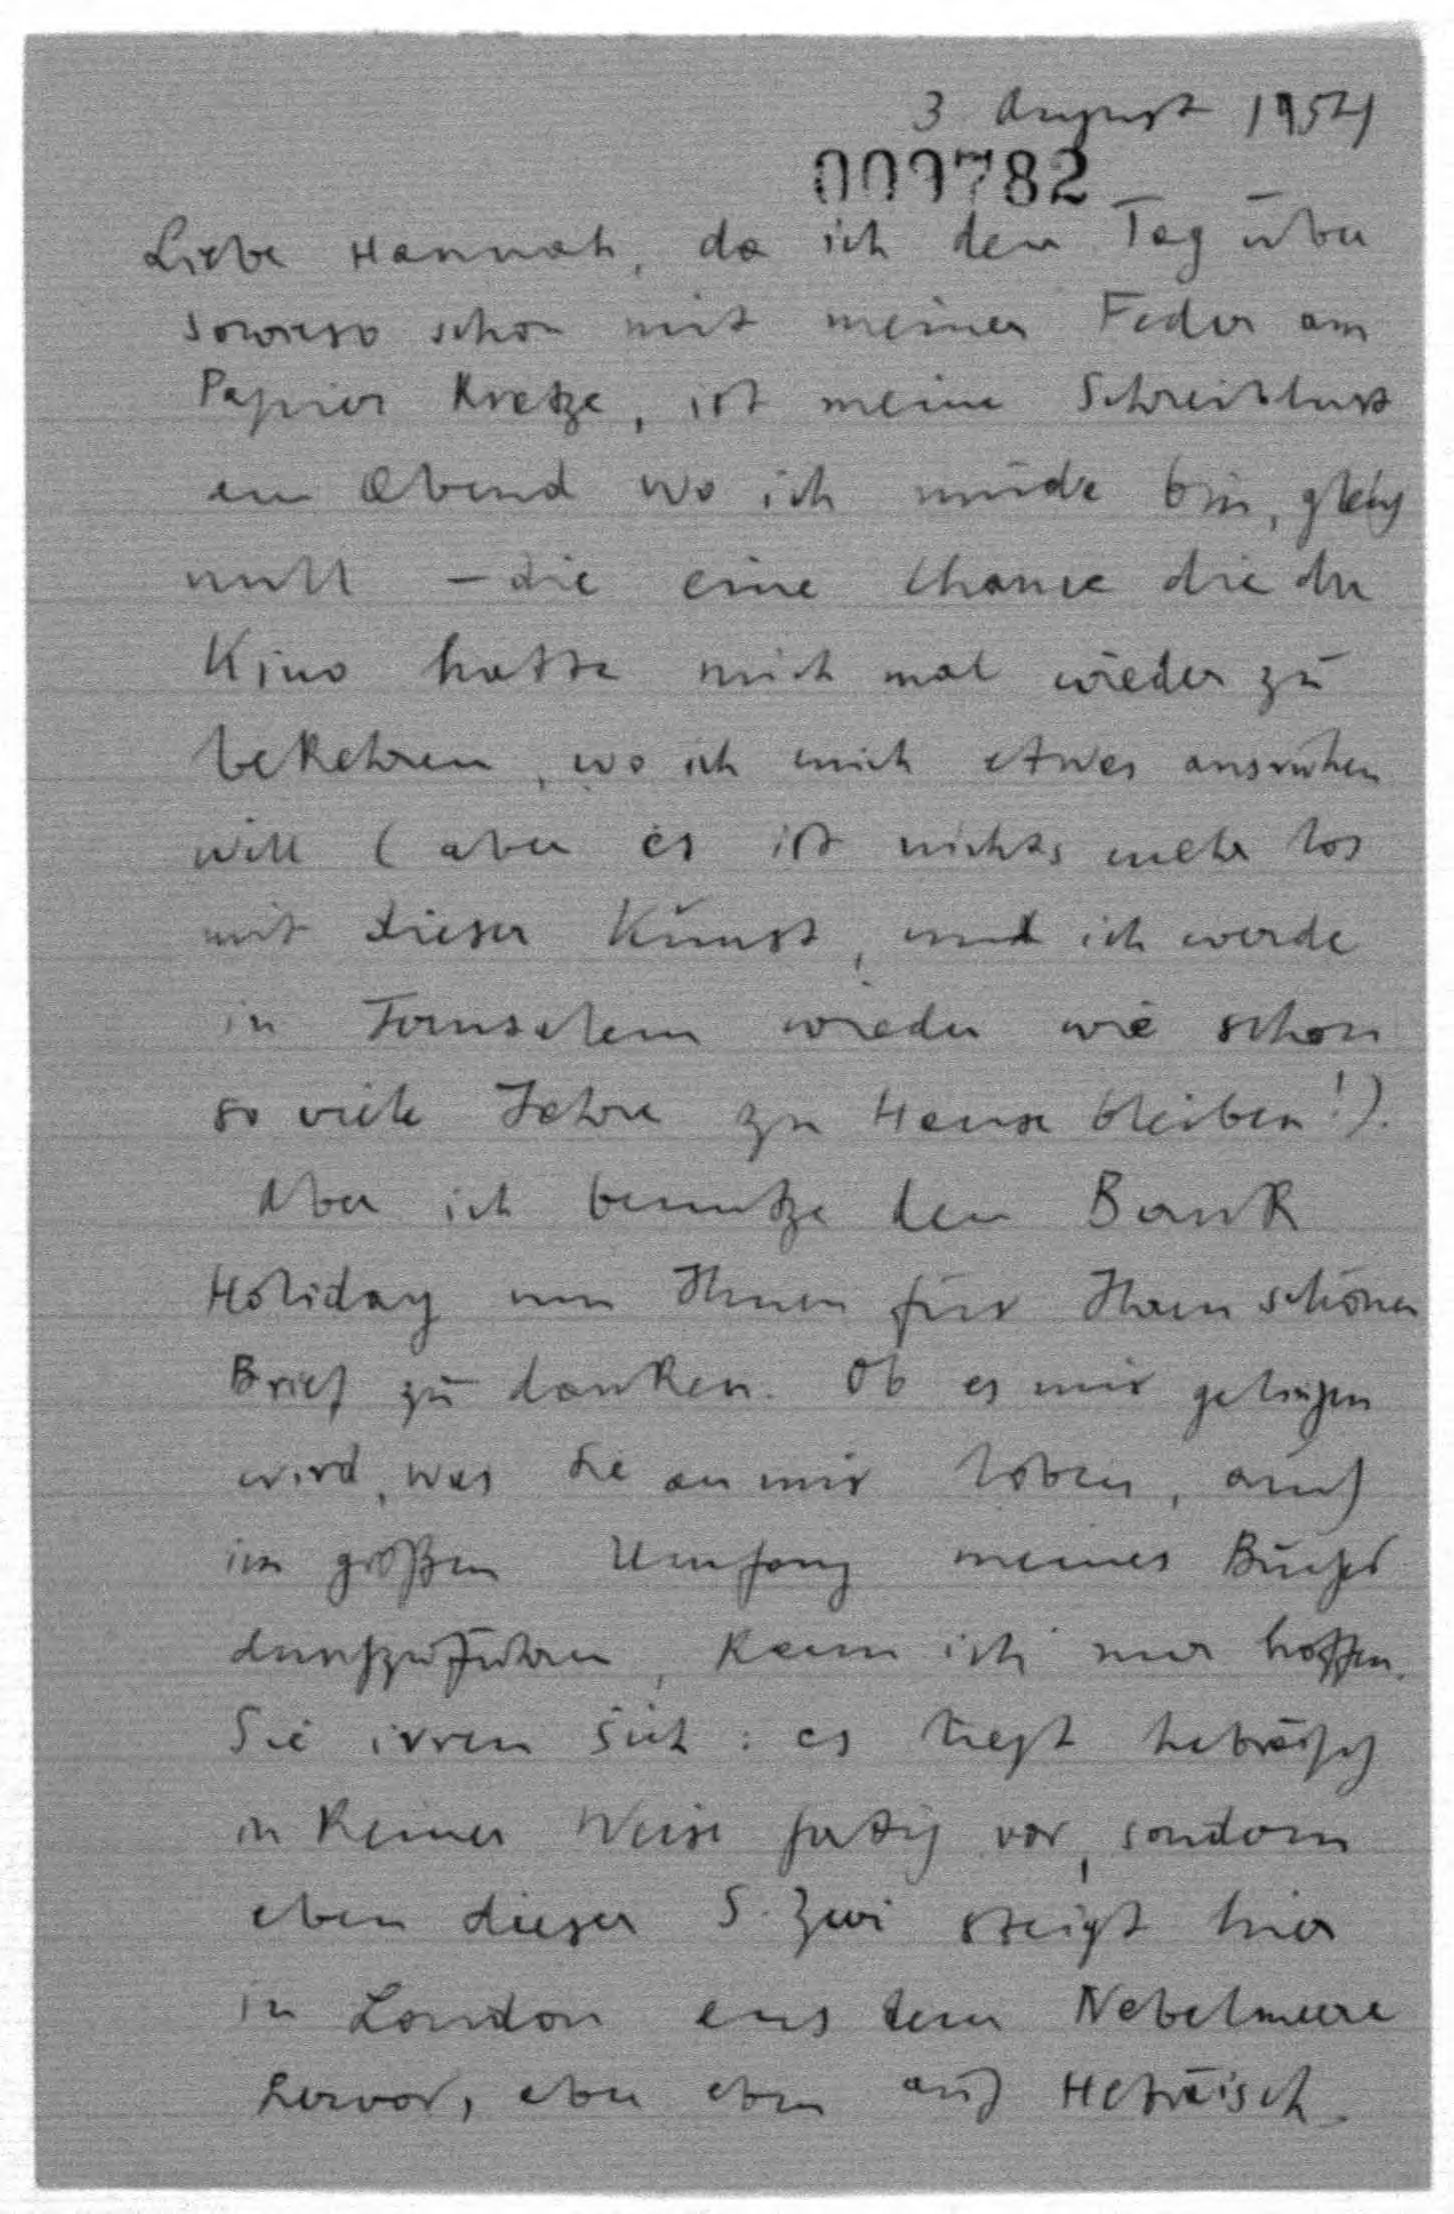 3 August 1954
009782
Liebe Hannah, da ich den Tag über
sowieso schon mit meiner Feder am
Papier kratze, ist meine Schreiblust
am Abend wo ich müde bin, gleich
null – die eine Chance die der
Kino hatte mich mal wieder zu
bekehren, wo ich mich etwas ausruhen
will (aber es ist nichts mehr los
mit dieser Kunst, und ich werde
in Jerusalem wieder wie schon
so viele Jahre zu Hause bleiben!).
Aber ich benutze den Bank
Holiday um Ihnen für Ihren schönen
Brief zu danken. Ob es mir gelingen
wird, was Sie an mir loben, auch
im großen Umfang meines Buches
durchzuführen, kann ich nur hoffen.
Sie irren sich: es liegt hebräisch
in keiner Weise fertig vor, sondern
eben dieser S. Zwi steigt hier
in London aus dem Nebelmeere
hervor, aber eben auf Hebräisch.